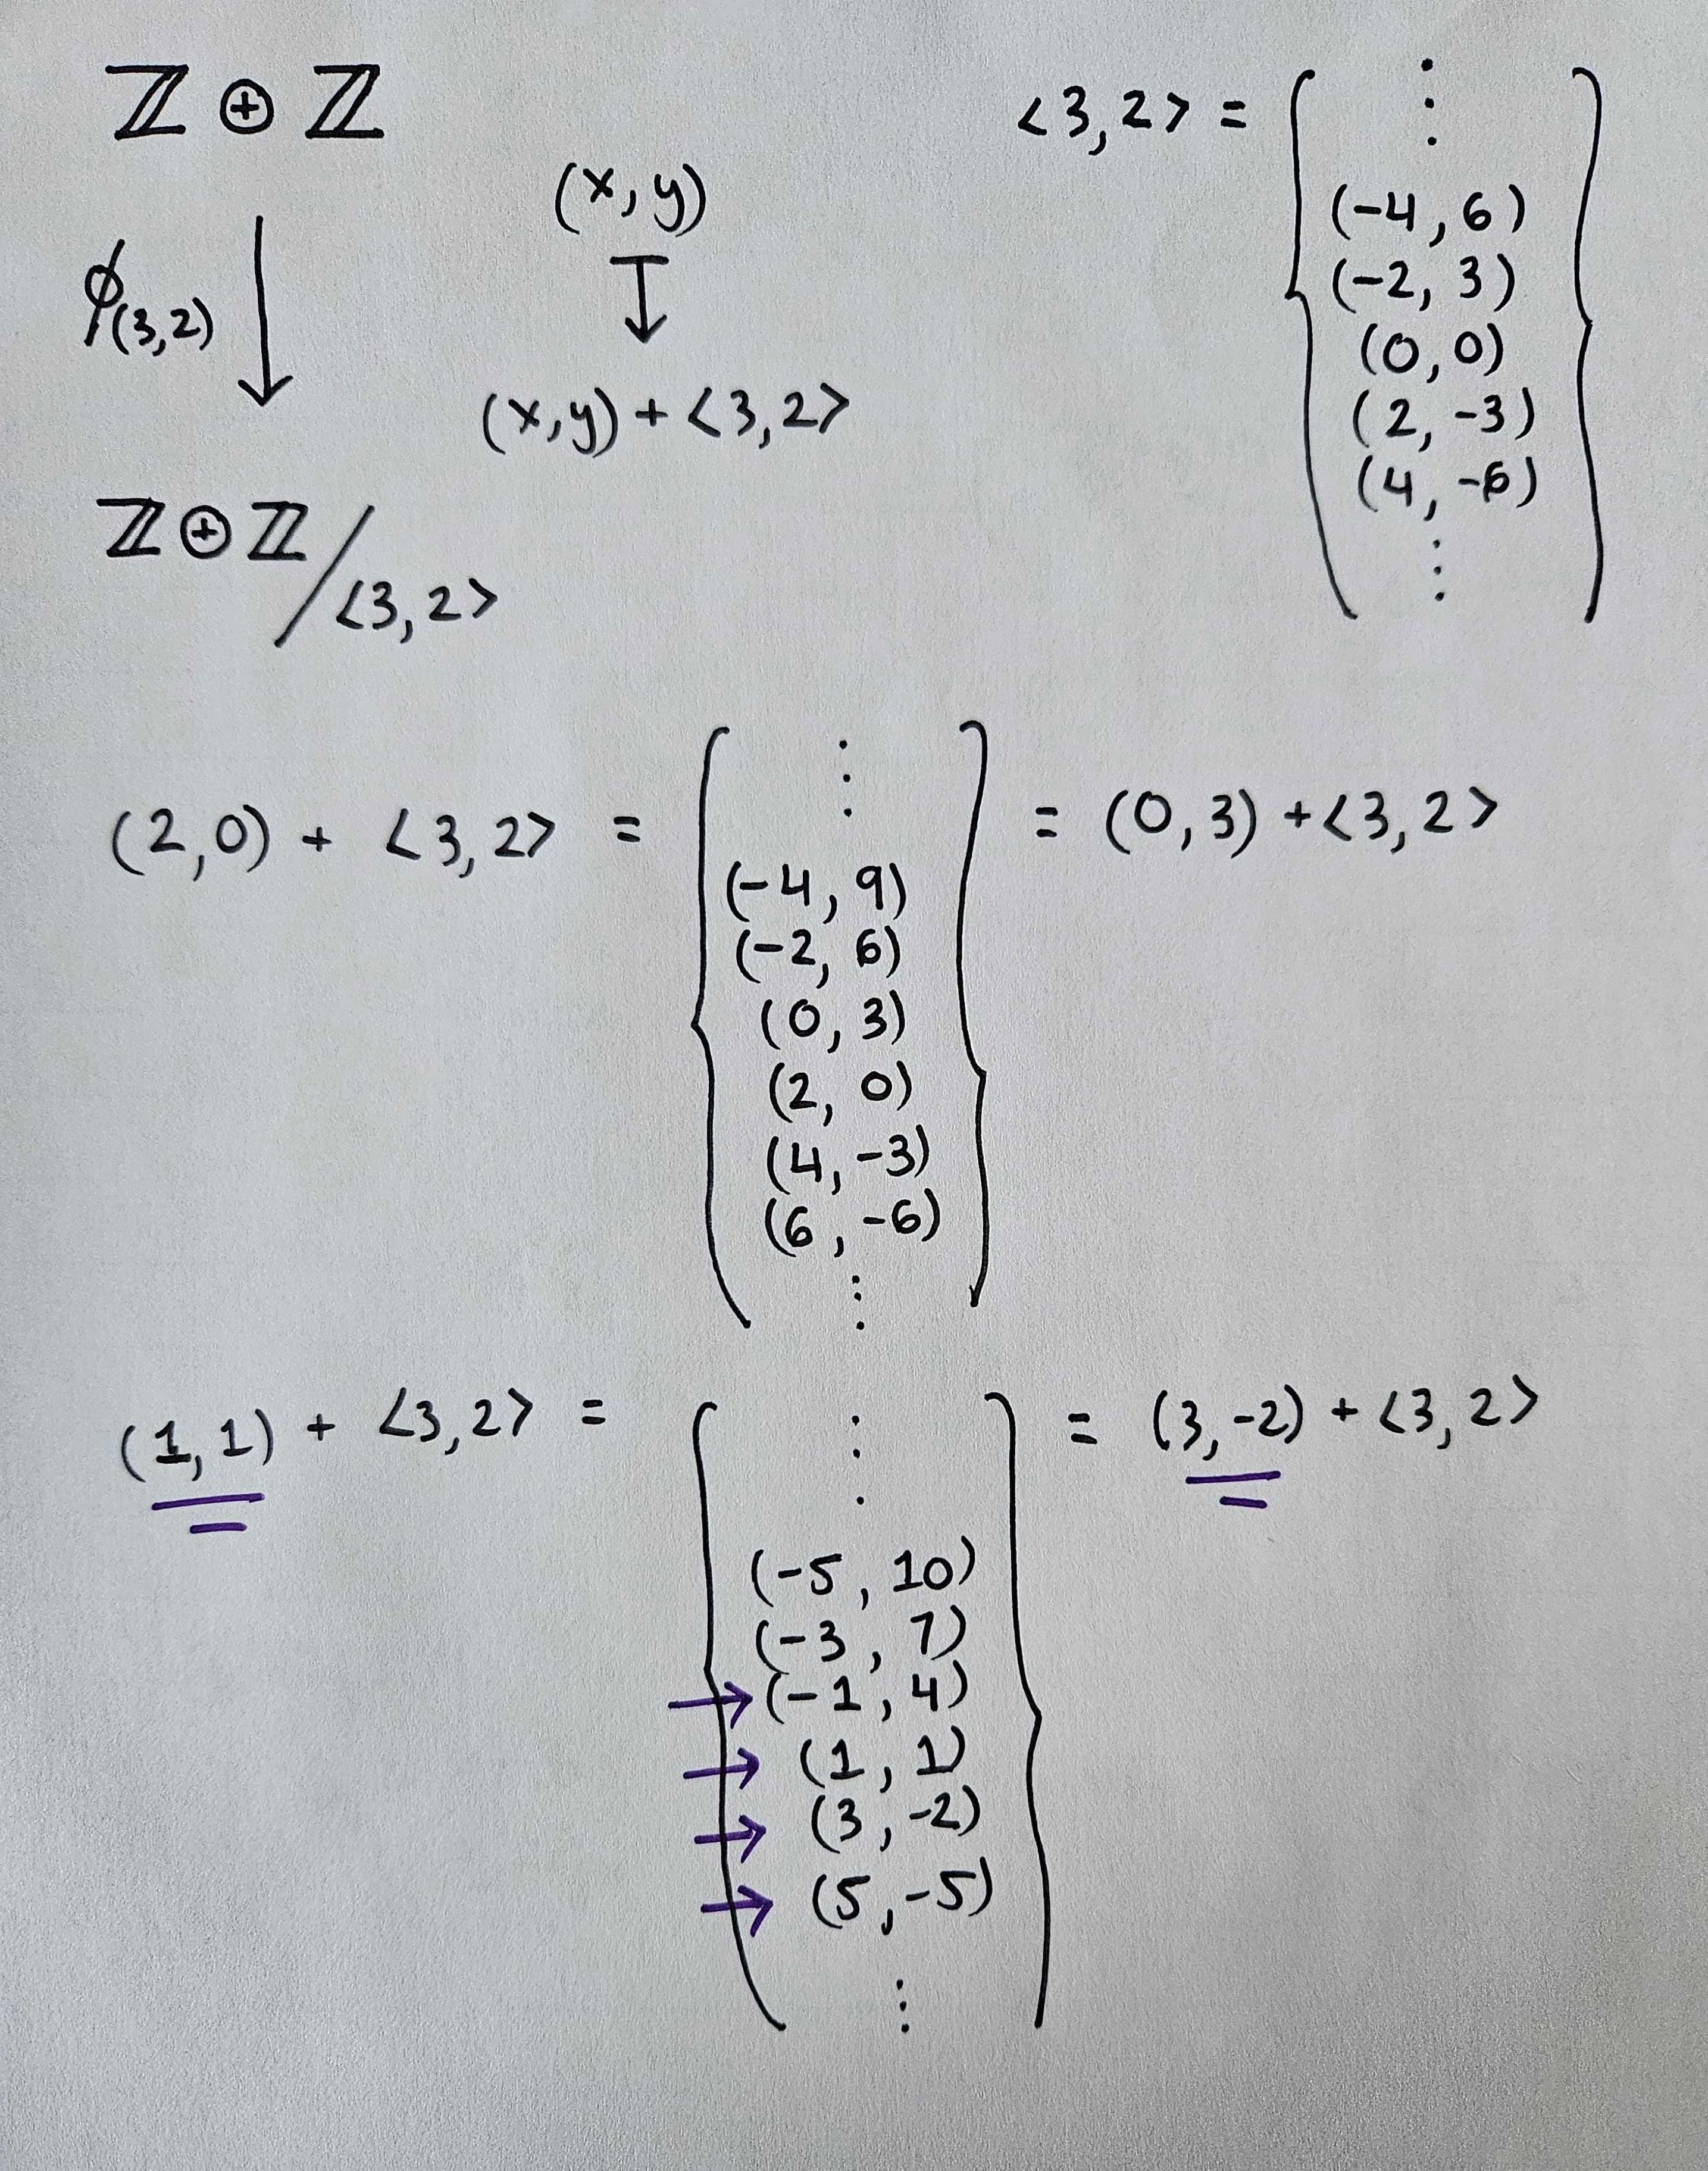 ℤ ⊕ ℤ
ϕ(3,2) ↓
(x,y)
↧
(x,y) + <3,2>
ℤ ⊕ ℤ / <3,2>
<3,2> = {
⋮
(-4, 6)
(-2, 3)
(0,0)
(2, -3)
(4, -6)
⋮
}
(2,0) + <3,2> = {
⋮
(-4, 9)
(-2, 6)
(0, 3)
(2, 0)
(4, -3)
(6, -6)
⋮
} = (0,3) + <3,2>
(1,1) + <3,2> = {
⋮
(-5, 10)
(-3, 7)
→ (-1, 4)
→ (1, 1)
→ (3, -2)
→ (5, -5)
⋮
} = (3,-2) + <3,2>